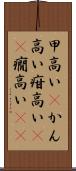 甲高いかん
高い疳高い
癇高い